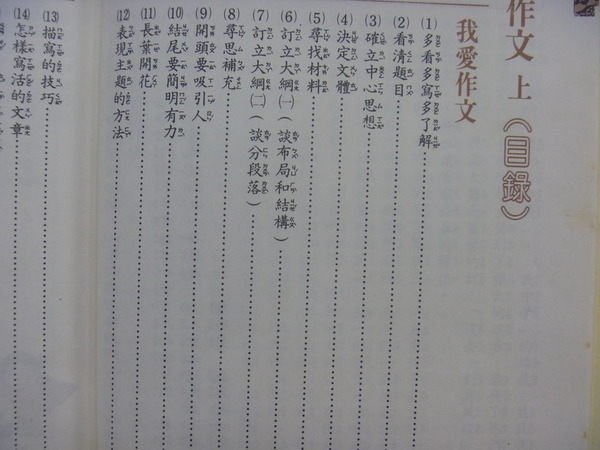 作文 上 《目錄》
我愛作文
(1) 多看多寫多了解
(2) 看清題目
(3) 確立中心思想
(4) 決定文體
(5) 尋找材料
(6) 訂立大綱(一)(談布局和結構)
(7) 訂立大綱(二)(談分段落)
(8) 尋思補充
(9) 開頭要吸引人
(10) 結尾要簡明有力
(11) 長葉開花
(12) 表現主題的方法
(13) 描寫的技巧
(14) 怎樣寫活的文章